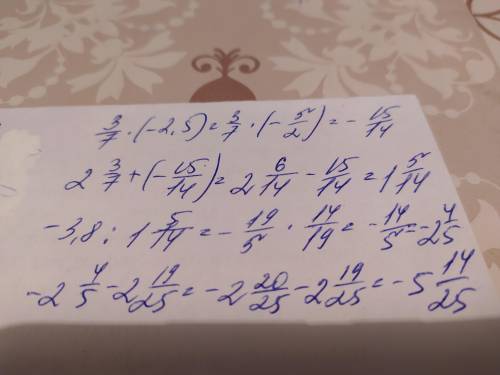 3/7 · (-2,5) = 3/7 · (-5/2) = -15/14
2 3/7 + (-15/14) = 2 6/14 - 15/14 = 1 5/14
-3,8 : 1 5/14 = -19/5 · 14/19 = -14/5 = -2 4/5
-2 4/5 - 2 19/25 = -2 20/25 - 2 19/25 = -5 14/25